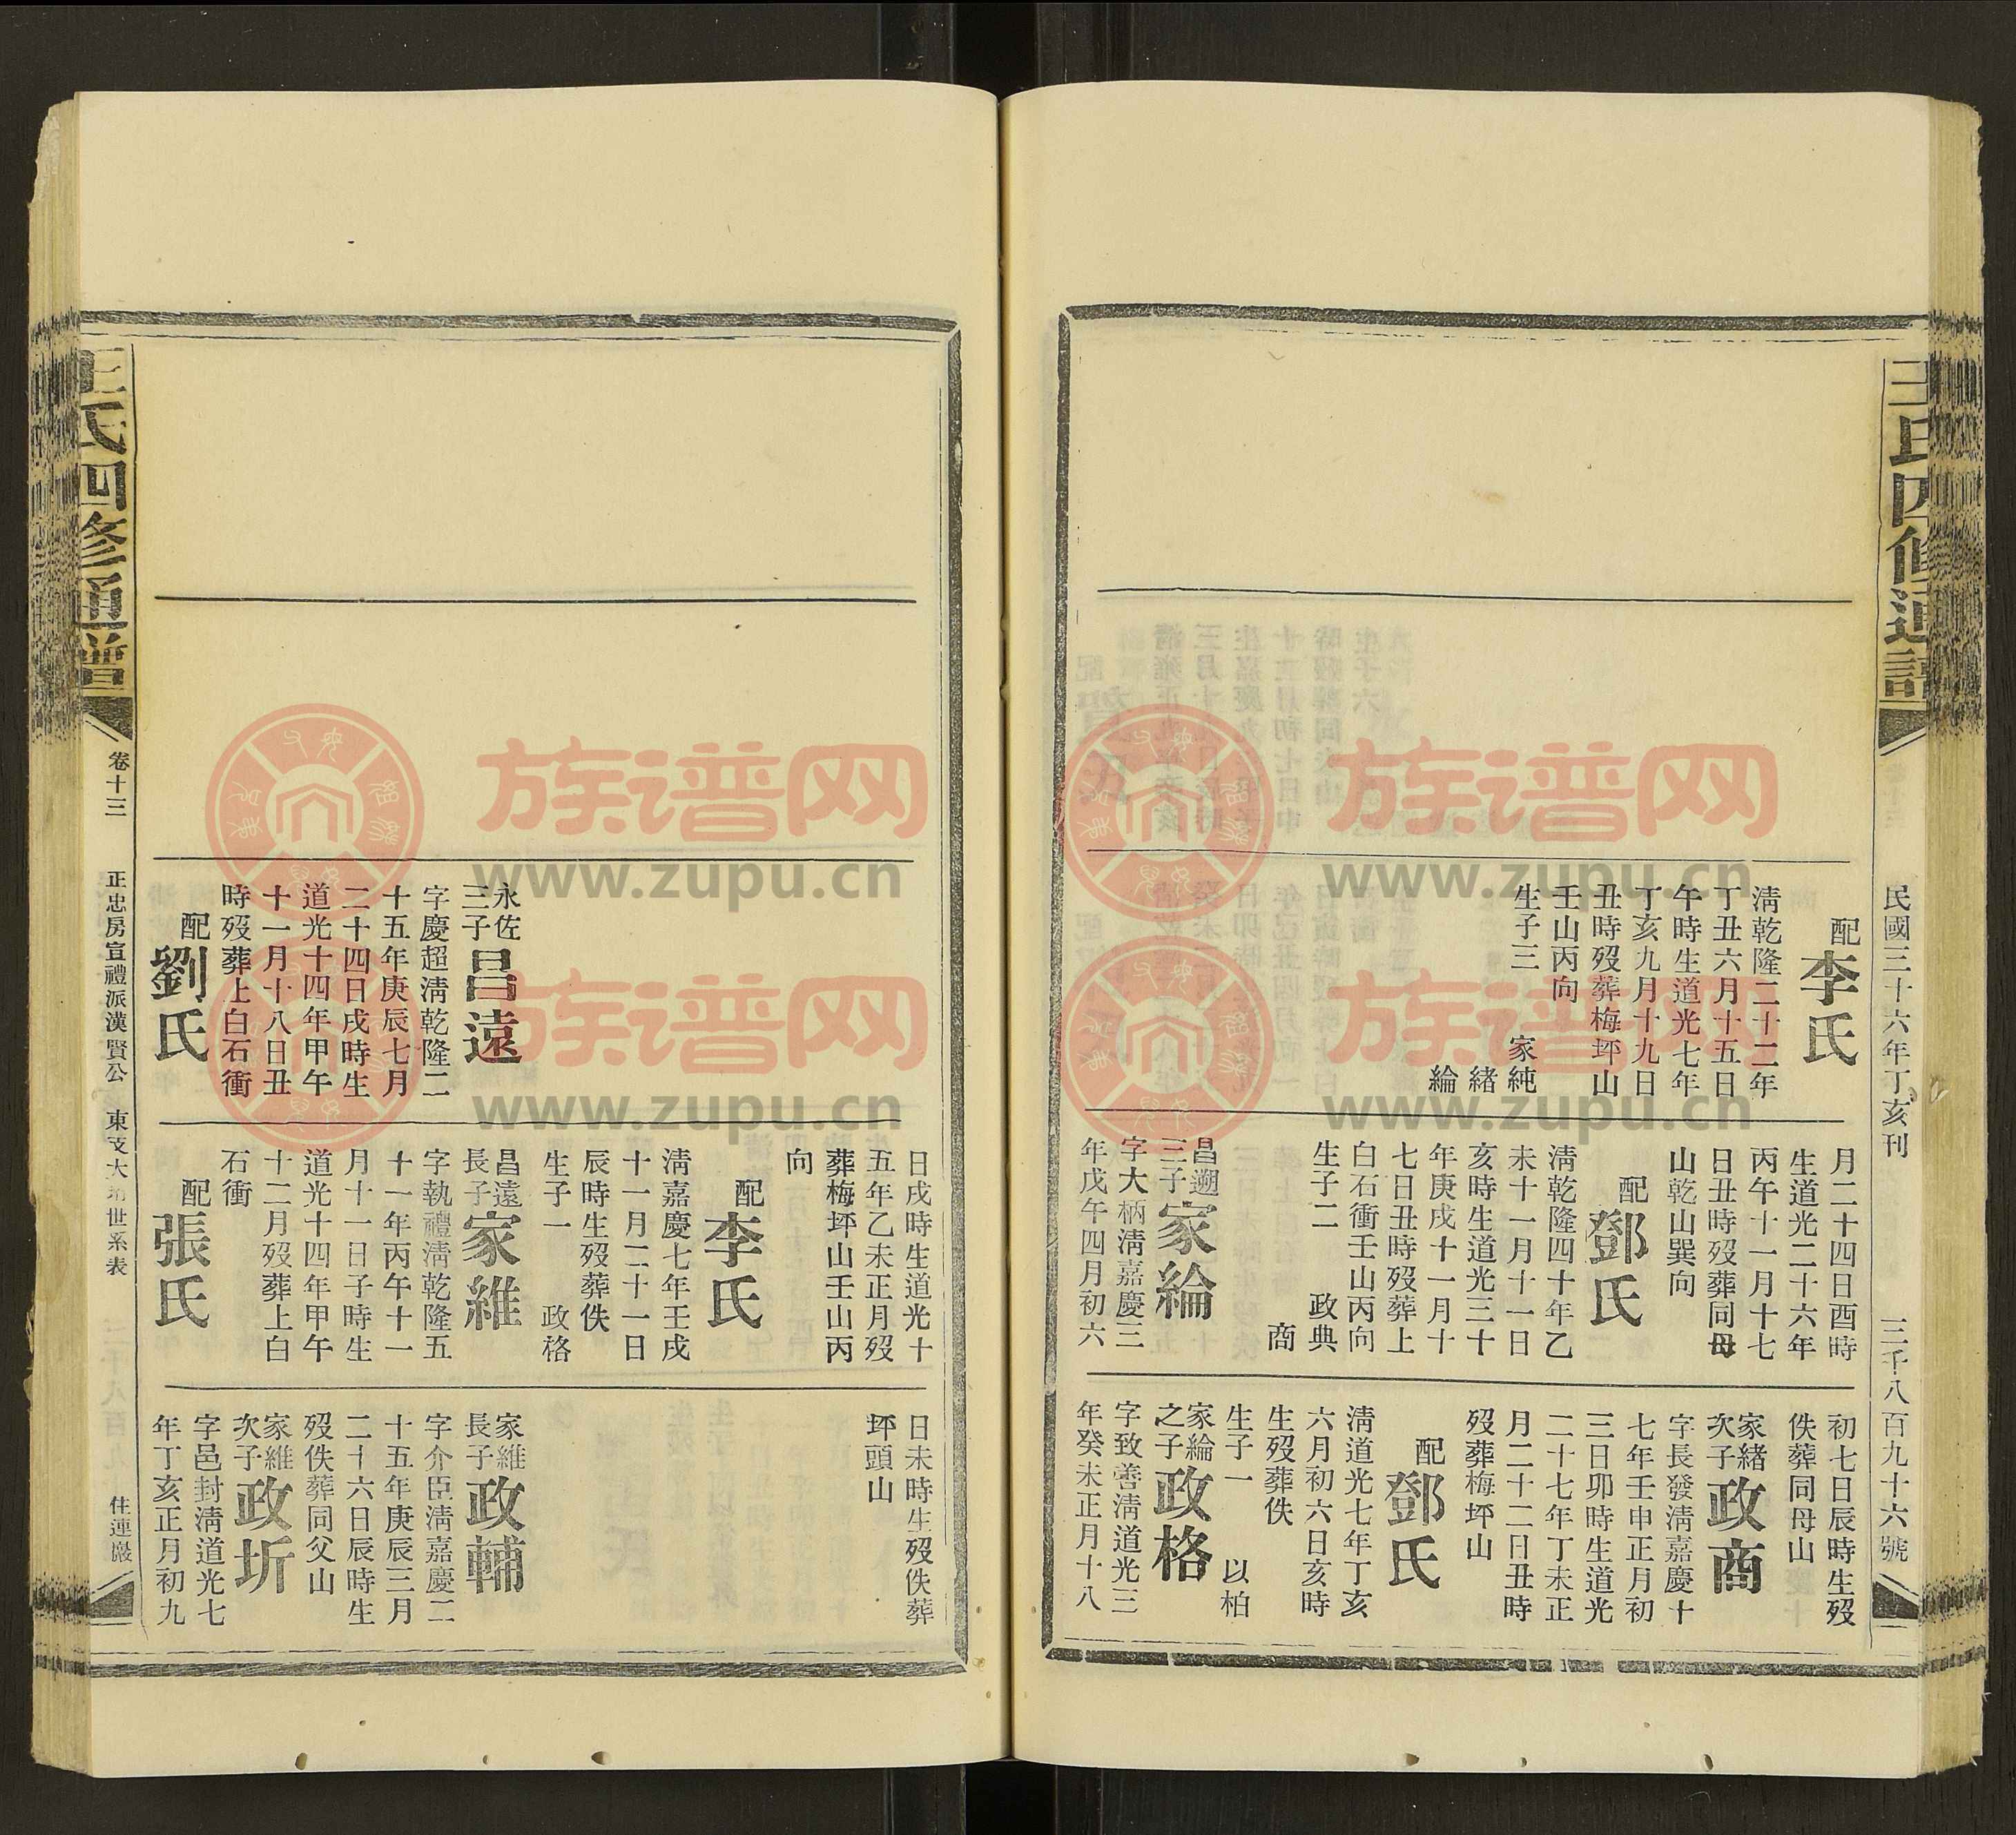 王氏四修通譜
民國三十六年丁亥刊
三千八百九十六號
配李氏
淸乾隆二十二年
丁丑六月十五日
午時生道光七年
丁亥九月十九日
丑時歿葬梅坪山
壬山丙向
生子三 家純
緒
綸
月二十四日酉時
生道光二十六年
丙午十一月十七
日丑時歿葬同母
山乾山巽向
配鄧氏
淸乾隆四十年乙
未十一月十一日
亥時生道光三十
年庚戌十一月十
七日丑時歿葬上
白石衝壬山丙向
生子二 政典
商
昌遡
三子
家綸
字大柄淸嘉慶三
年戊午四月初六
初七日辰時生歿
佚葬同母山
家緒
次子
政商
字長發淸嘉慶十
七年壬申正月初
三日卯時生道光
二十七年丁未正
月二十二日丑時
歿葬梅坪山
配鄧氏
淸道光七年丁亥
六月初六日亥時
生歿葬佚
生子一 以柏
家綸
之子
政格
字致善淸道光三
年癸未正月十八
永佐
三子
昌遠
字慶超淸乾隆二
十五年庚辰七月
二十四日戌時生
道光十四年甲午
十一月十八日丑
時歿葬上白石衝
配劉氏
日戌時生道光十
五年乙未正月歿
葬梅坪山壬山丙
向
配李氏
淸嘉慶七年壬戌
十一月二十一日
辰時生歿葬佚
生子一 政格
昌遠
長子
家維
字執禮淸乾隆五
十一年丙午十一
月十一日子時生
道光十四年甲午
十二月歿葬上白
石衝
配張氏
日未時生歿佚葬
坪頭山
家維
長子
政輔
字介臣淸嘉慶二
十五年庚辰三月
二十六日辰時生
歿佚葬同父山
家維
次子
政圻
字邑封淸道光七
年丁亥正月初九
王氏四修通譜
卷十三
正忠房宣禮派漢賢公
東支大 世系表
住連巖
族谱网
www.zupu.cn
族谱网
www.zupu.cn
族谱网
www.zupu.cn
族谱网
www.zupu.cn